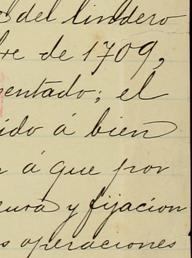 del lindero
re de 1709,
entado; el
ido á bien
á que por
cura y fijacion
s operaciones